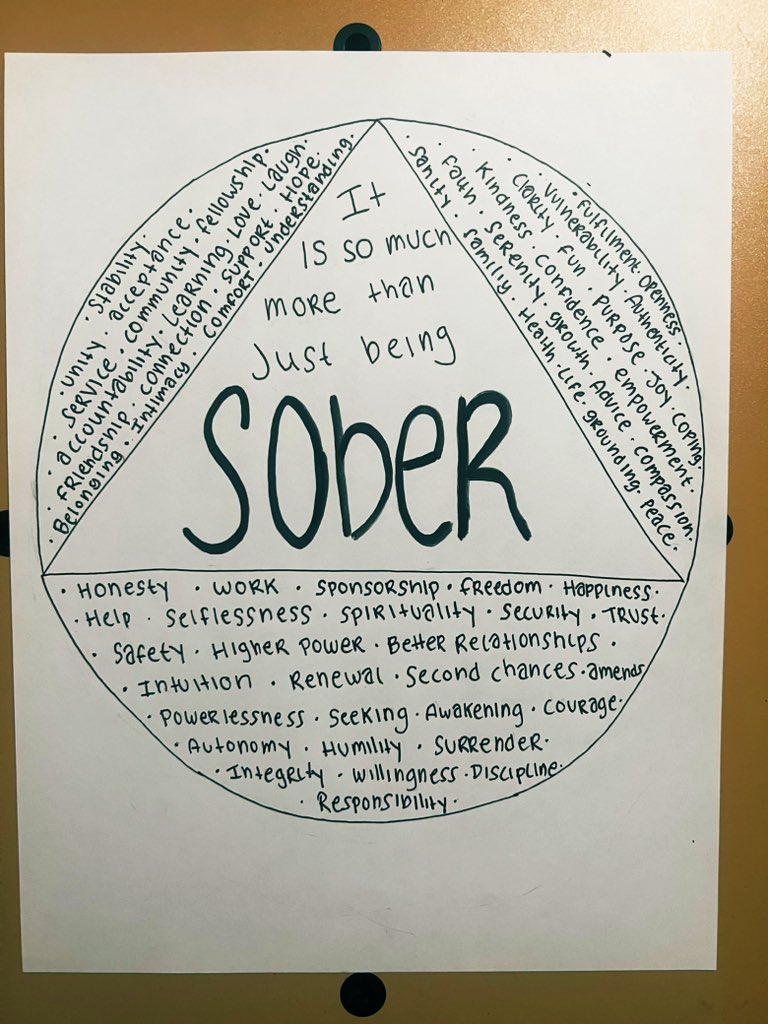 · Stability ·
· unity · acceptance ·
· Service · community · fellowship ·
· accountability · Learning · Love · Laugh ·
· Friendship · connection · support · Hope ·
· Belonging · Intimacy · comfort · understanding ·
It
Is so much
more than
Just being
SOBER
· Fulfillment · openness ·
· Vulnerability · Authenticity ·
· Clarity · Fun · Purpose · Joy · Coping ·
· Kindness · Confidence · empowerment ·
· Faith · Serenity · growth · Advice · compassion ·
· Sanity · Familiy · Health · Life · grounding · Peace ·
· Honesty · work · sponsorship · freedom · Happiness ·
· Help · Selflessness · spirituality · security · TRUST ·
· Safety · Higher Power · Better Relationships ·
· Intuition · Renewal · Second chances · amends
· Powerlessness · Seeking · Awakening · courage ·
· Autonomy · Humility · Surrender ·
· Integrity · willingness · Discipline ·
· Responsibility ·